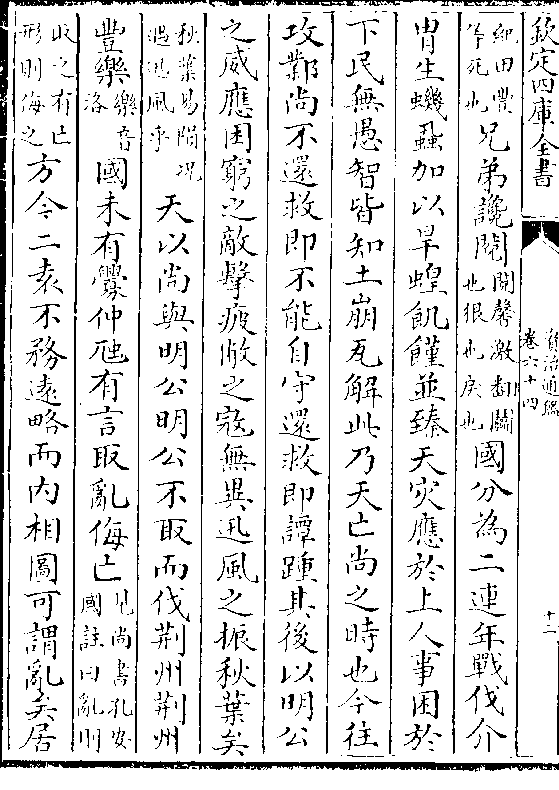 欽定四庫全書
資治通鑑
卷六十四
十二
紀田豐
等死也
兄弟讒鬩
鬩馨激翻鬭
也很也戾也
國分為二連年戰伐介
胄生蟣蝨加以旱蝗飢饉並臻天灾應於上人事困於
下民無愚智皆知土崩瓦解此乃天亡尚之時也今往
攻鄴尚不還救即不能自守還救即譚踵其後以明公
之威應困窮之敵擊疲敝之寇無異迅風之振秋葉矣
秋葉易隕况
遇迅風乎
天以尚與明公明公不取而伐荆州荆州
豐樂
樂音
洛
國未有釁仲虺有言取亂侮亡
見尚書孔安
國註曰亂則
取之有亡
形則侮之
方今二袁不務遠略而内相圖可謂亂矣居